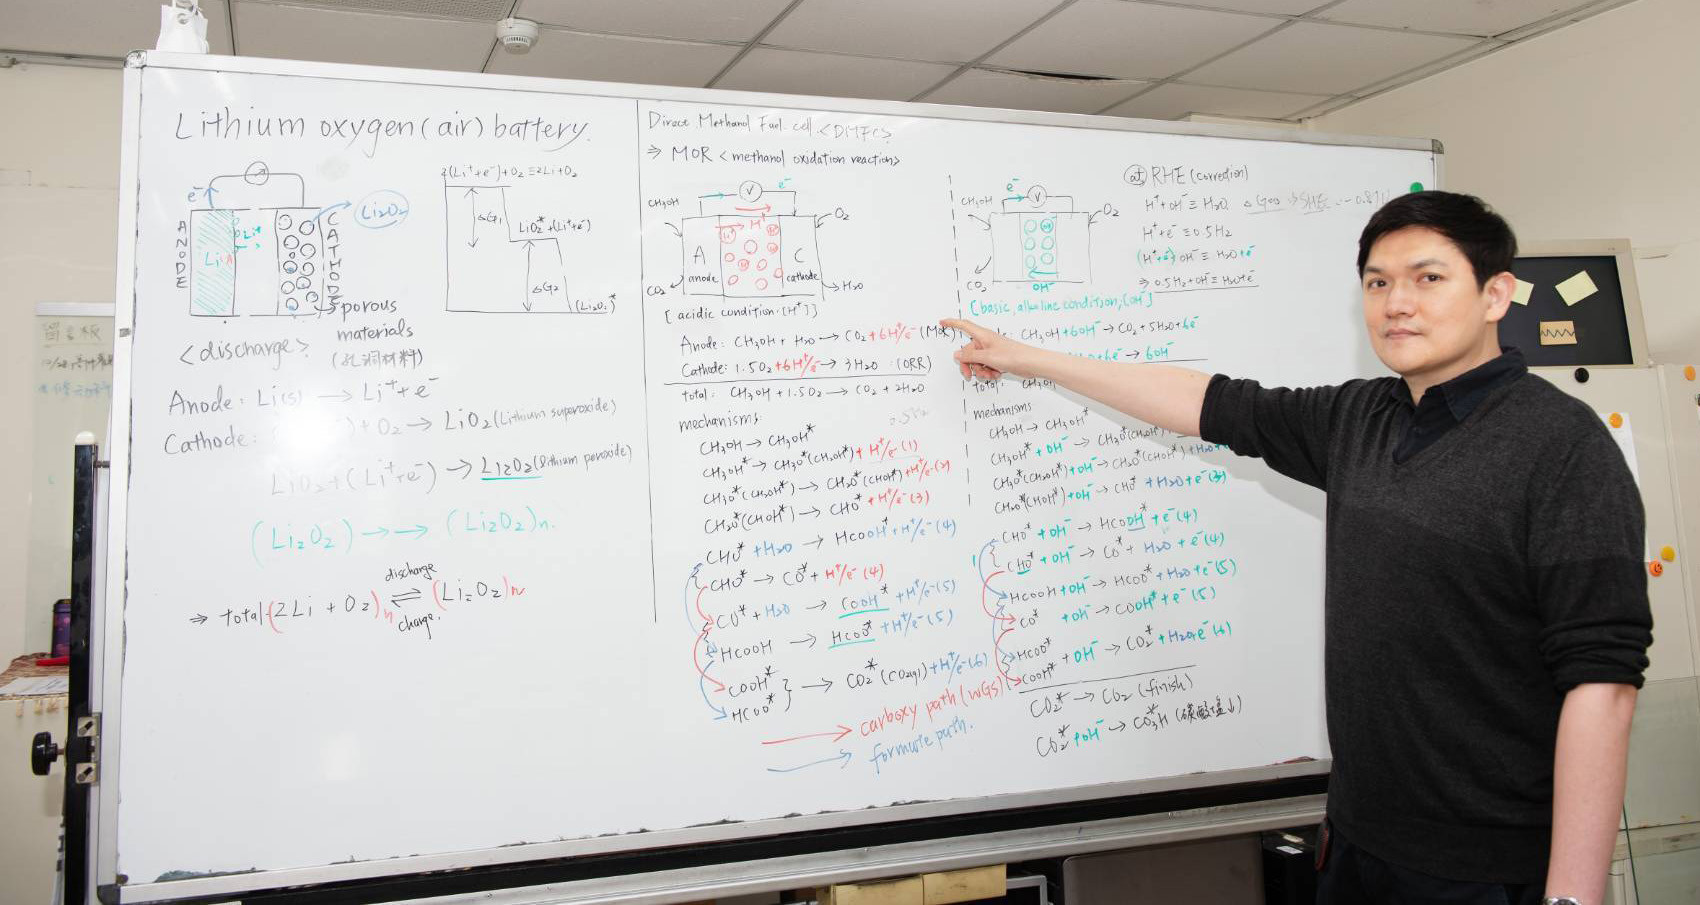 Lithium oxygen (air) battery.
e⁻
ANODE
Li
Li⁺
CATHODE
Li₂O₂
porous
materials
(孔洞材料)
ΔG₁
LiO₂* + (Li⁺+e⁻)
ΔG₂
(Li₂O₂)*
<discharge>
Anode: Li(s) → Li⁺ + e⁻
Cathode: + O₂ → LiO₂ (Lithium superoxide)
LiO₂ + (Li⁺+e⁻) → Li₂O₂ (lithium peroxide)
(Li₂O₂) → → (Li₂O₂)n.
discharge
⇒ total: (2Li + O₂)n ⇌ (Li₂O₂)n
charge.
Direct Methanol Fuel cell <DMFCs>
⇒ MOR <methanol oxidation reaction>
CH₃OH
V
e⁻
O₂
H⁺
A
anode
C
cathode
CO₂
H₂O
[acidic condition: [H⁺]]
Anode: CH₃OH + H₂O → CO₂ + 6H⁺/e⁻ (MOR)
Cathode: 1.5O₂ + 6H⁺/e⁻ → 3H₂O : (ORR)
total: CH₃OH + 1.5O₂ → CO₂ + 2H₂O
mechanisms:
CH₃OH → CH₃OH*
CH₃OH* → CH₃O*(CH₂OH*) + H⁺/e⁻ (1)
CH₃O*(CH₂OH*) → CH₂O*(CHOH*) + H⁺/e⁻ (2)
CH₂O*(CHOH*) → CHO* + H⁺/e⁻ (3)
CHO* + H₂O → HCOOH* + H⁺/e⁻ (4)
CHO* → CO* + H⁺/e⁻ (4)
CO* + H₂O → COOH* + H⁺/e⁻ (5)
HCOOH → HCOO* + H⁺/e⁻ (5)
COOH*
HCOO* } → CO₂* (CO₂(g)) + H⁺/e⁻ (6)
→ carboxy path (WGS)
→ formate path.
CH₃OH
e⁻
V
O₂
CO₂
OH⁻
at RHE (correction)
H⁺ + OH⁻ ≡ H₂O
H⁺ + e⁻ ≡ 0.5H₂
(H⁺+e⁻) OH⁻ ≡ H₂O + e⁻
⇒ 0.5H₂ + OH⁻ ≡ H₂O + e⁻
[basic, alkaline condition, [OH⁻]
CH₃OH + 6OH⁻ → CO₂ + 5H₂O + 6e⁻
+ 6e⁻ → 6OH⁻
total: CH₃OH
mechanisms
CH₃OH → CH₃OH*
CH₃OH* + OH⁻ → CH₃O*(CH₂OH*)
CH₃O*(CH₂OH*) + OH⁻ → CH₂O*(CHOH*) + H₂O
CH₂O*(CHOH*) + OH⁻ → CHO* + H₂O + e⁻ (3)
CHO* + OH⁻ → HCOOH* + e⁻ (4)
CHO* + OH⁻ → CO* + H₂O + e⁻ (4)
HCOOH + OH⁻ → HCOO* + H₂O + e⁻ (5)
CO* + OH⁻ → COOH* + e⁻ (5)
HCOO*
COOH* + OH⁻ → CO₂* + H₂O + e⁻ (6)
CO₂* → CO₂ (finish)
CO₂* + OH⁻ → CO₃*H